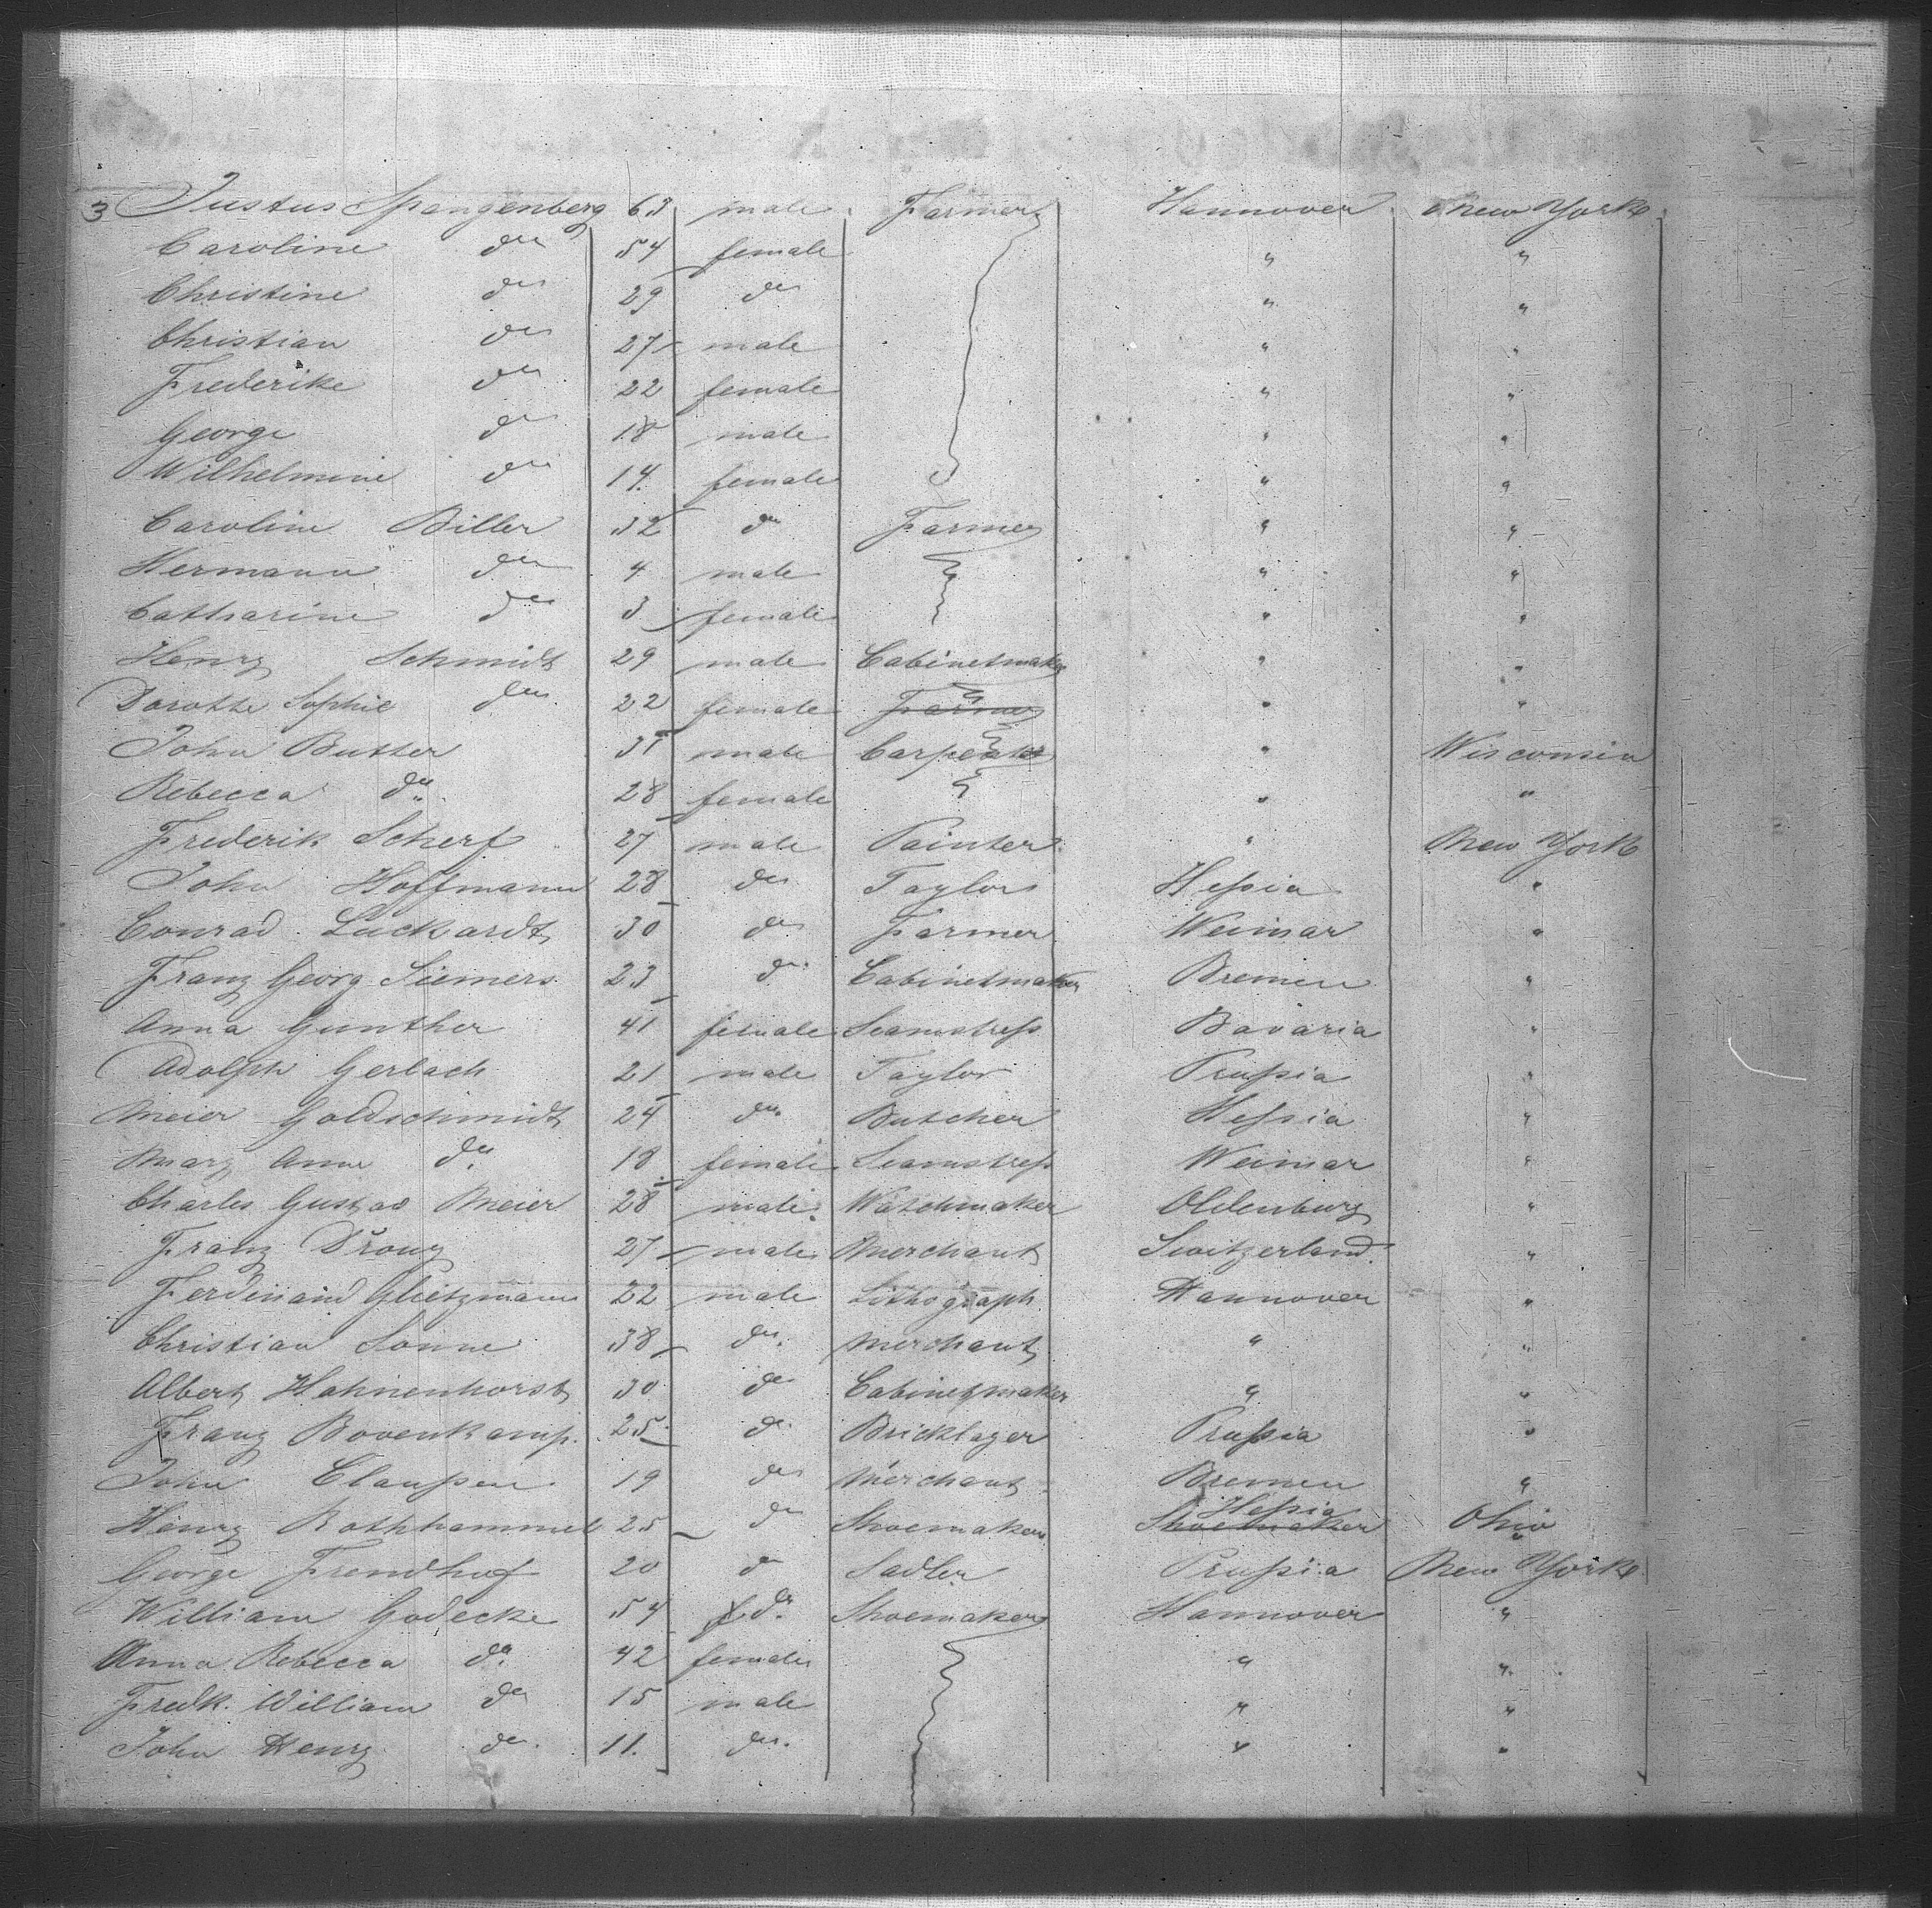 3 Justus Spangenberg 63 male Farmer Hannover New York
Caroline do 54 female " "
Christine do 29 do " "
Christian do 27 male " "
Frederike do 22 female " "
George do 18 male " "
Wilhelmine do 14 female " "
Caroline Biller 32 do Farmer " "
Hermann do 4 male " "
Catharine do 3 female " "
Henry Schmidt 29 male Cabinetmaker " "
Dorothe Sophie do 22 female Farmer " "
John Butter 31 male Carpenter " Wisconsin
Rebecca do 28 female " "
Frederik Scherf 27 male Painter " New York
John Hoffmann 28 do Taylor Hessia "
Conrad Luckardt 30 do Farmer Weimar "
Franz Georg Siemers 23 do Cabinetmaker Bremen "
Anna Gunther 41 female Seamstress Bavaria "
Adolph Gerlach 21 male Taylor Prussia "
Meier Goldschmidt 24 do Butcher Hessia "
Mary Anne do 18 female Seamstress Weimar "
Charles Gustav Meier 28 male Watchmaker Oldenburg "
Franz 27 male Merchant Switzerland "
Ferdinand Glietzmann 22 male Lithograph Hannover "
Christian Sonne 38 do Merchant " "
Albert Hahnenhorst 30 do Cabinetmaker " "
Franz Bovenkamp 25 do Bricklayer Prussia "
John Claussen 19 do Merchant Bremen "
Henry Rothhammel 25 do Shoemaker Shoemaker Hessia Ohio
George Frendhof 20 do Sadler Prussia New York
William Godecke 54 f do Shoemaker Hannover "
Anna Rebecca do 42 female " "
Fredk. William do 15 male " "
John Henry do 11. do " "